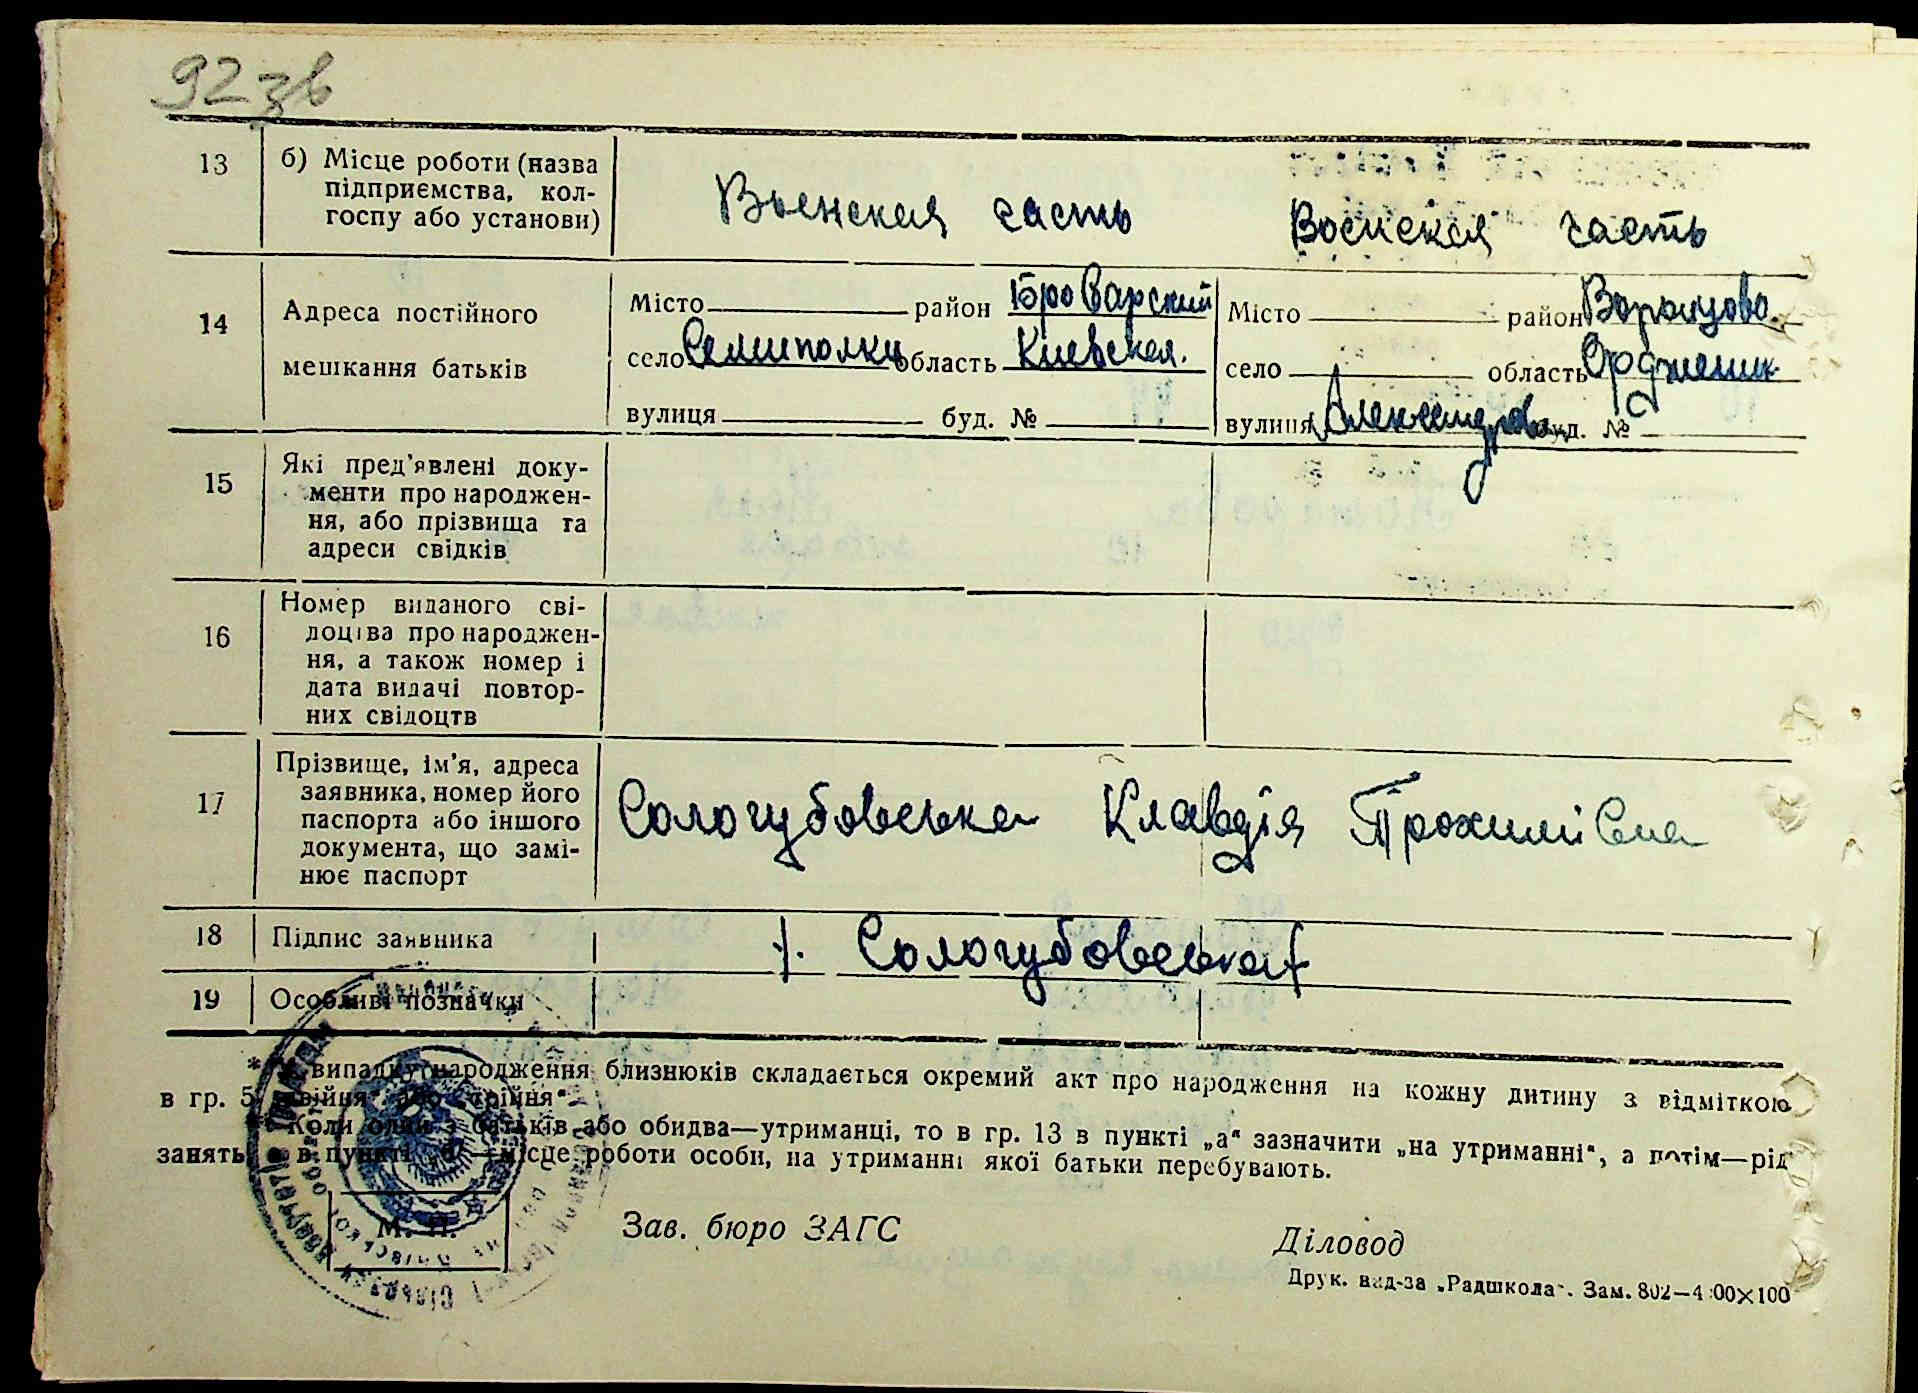 92 зв
13 б) Місце роботи (назва
підприємства, кол-
госпу або установи)
Воєнская часть Воєнская часть
14 Адреса постійного
мешкання батьків
Місто район Броварский Місто район Воронцово
село Семиполки область Киевская. село область Орджоник
вулиця буд. № вулиця буд. №
15 Які пред'явлені доку-
менти про народжен-
ня, або прізвища та
адреси свідків
16 Номер виданого сві-
доцтва про народжен-
ня, а також номер і
дата видачі повтор-
них свідоцтв
17 Прізвище, ім'я, адреса
заявника, номер його
паспорта або іншого
документа, що замі-
нює паспорт
Сологубовська Клавдія Трохимівна
18 Підпис заявника Сологубовська
19 Особливі позначки
* У випадку народження близнюків складається окремий акт про народження на кожну дитину з відміткою
в гр. 5 „двійня" або „трійня".
Коли один з батьків або обидва—утриманці, то в гр. 13 в пункті „а" зазначити „на утриманні", а потім—рід
занять, в пункті „б"—місце роботи особи, на утриманні якої батьки перебувають.
М. П. Зав. бюро ЗАГС Діловод
Друк. вид-ва „Радшкола". Зам. 802—4000×100